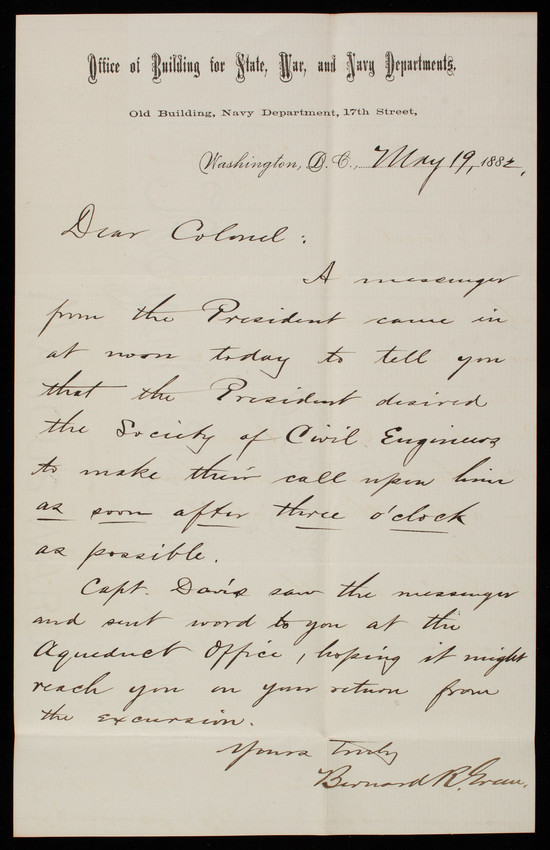 Office of Building for State, War, and Navy Departments.
Old Building, Navy Department, 17th Street,
Washington, D. C., May 19, 1882,
Dear Colonel:
A messenger
from the President came in
at noon today to tell you
that the President desired
the Society of Civil Engineers
to make their call upon him
as soon after three o'clock
as possible.
Capt. Davis saw the messenger
and sent word to you at the
Aqueduct Office, hoping it might
reach you on your return from
the excursion.
Yours truly
Bernard R. Green.